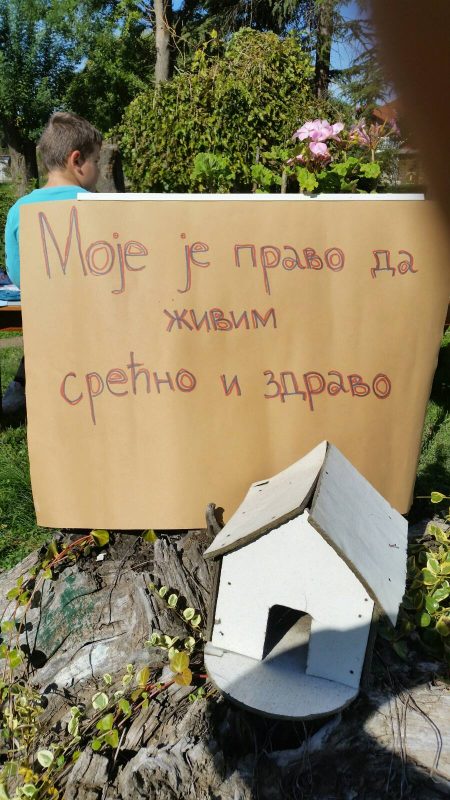 Моје је право да
живим
срећно и здраво